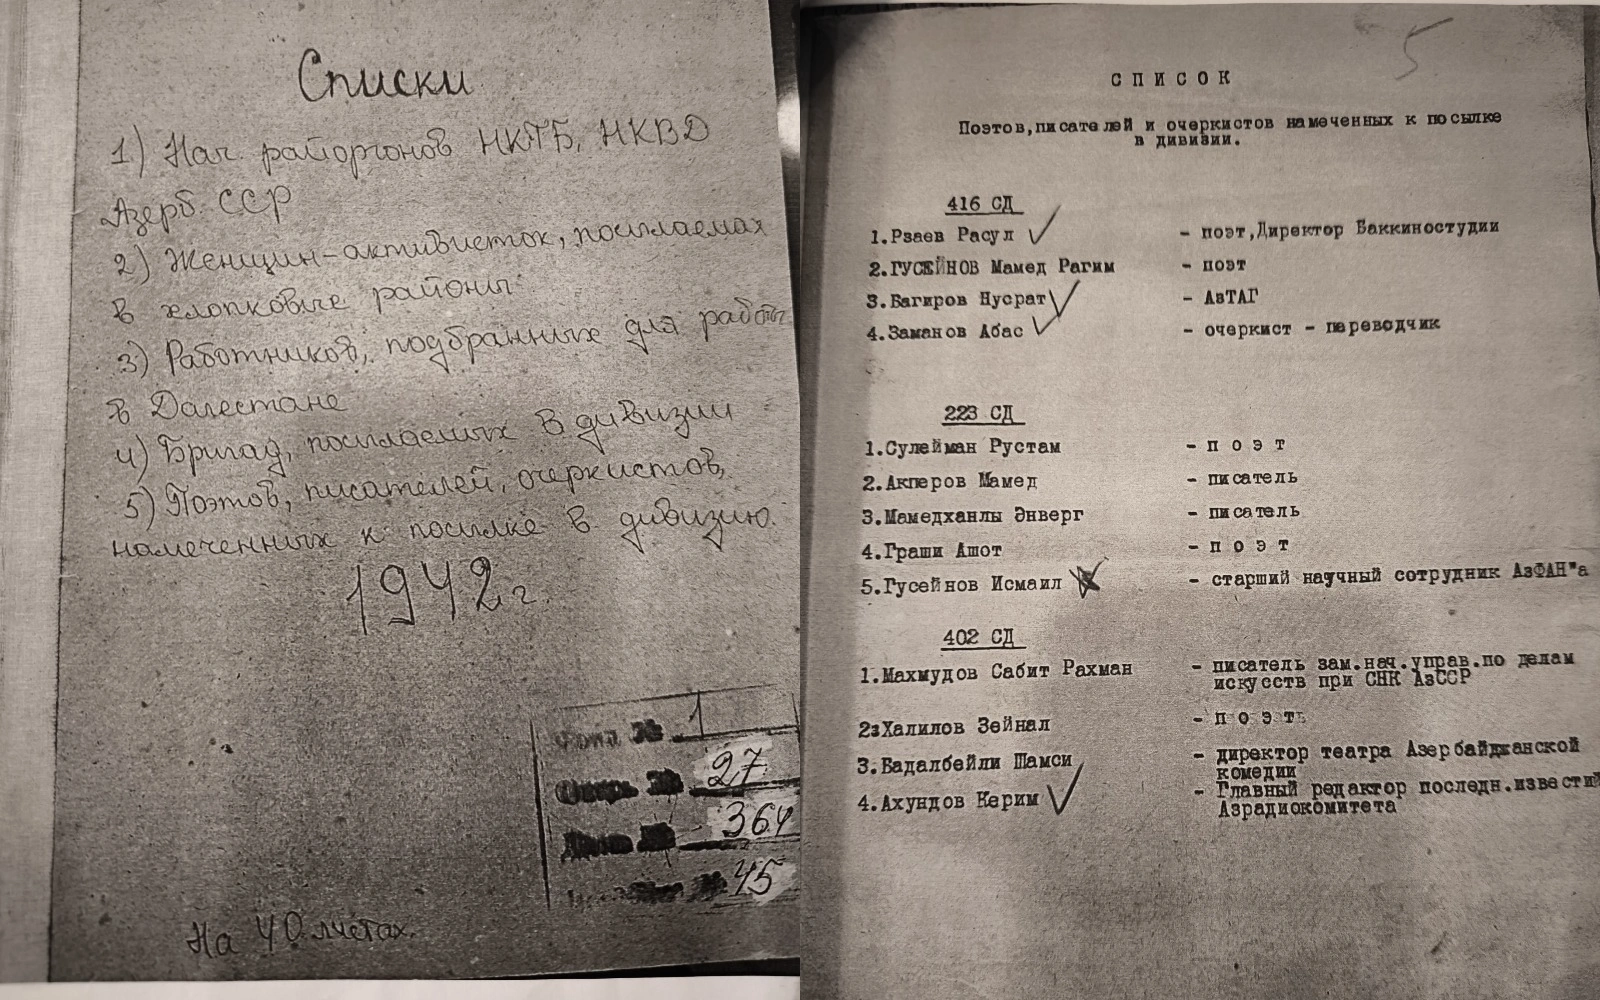 Списки
1) Нач. райоргонов НКГБ, НКВД
Азерб. ССР
2) Женщин-активисток, посылаемах
в хлопковые районы
3) Работников, подбранных для работы
в Дагестане
4) Бригад, посылаемых в дивизии
5) Поэтов, писателей, очеркистов,
намеченных к посылке в дивизию.
1942 г.
Фонд № 1
Опись № 27
364
45
На 40 листах.
5
СПИСОК
Поэтов,писателей и очеркистов намеченных к посылке
в дивизии.
416 СД
1.Рзаев Расул - поэт,Директор Баккиностудии
2.ГУСЕЙНОВ Мамед Рагим - поэт
3.Багиров Нусрат - АзТАГ
4.Заманов Абас - очеркист - переводчик
223 СД
1.Сулейман Рустам - поэт
2.Акперов Мамед - писатель
3.Мамедханлы Энверг - писатель
4.Граши Ашот - поэт
5.Гусейнов Исмаил - старший научный сотрудник АзФАН"а
402 СД
1.Махмудов Сабит Рахман - писатель зам.нач.управ.по делам
искусств при СНК АзССР
2зХалилов Зейнал - поэт
3.Бадалбейли Шамси - директор театра Азербайджанской
комедии
4.Ахундов Керим - Главный редактор последн.известий
Азрадиокомитета